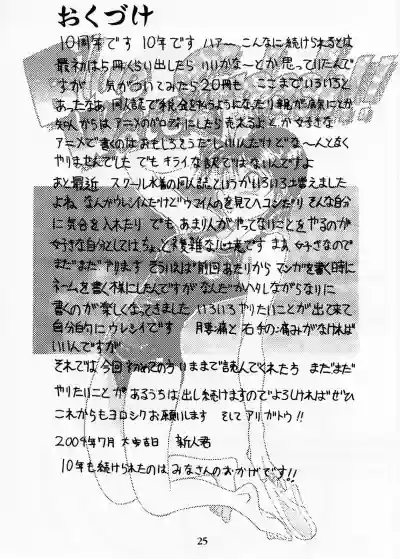 おくづけ
10周年です 10年です ハァ〜 こんなに続けられるとは
最初は5冊くらい出したら いいかな〜とか思っていたんで
すが 気がついてみたら20冊も ここまでいろいろと
あったなぁ 同人誌で
知人からは アニメのパロなんにしたら売れるよ とか
アニメで書くのはおもしろそうだし いいんだけど な〜んとなく
やりませんでした でも キライな訳ではないんですよ
あと最近 スクール水着の同人誌というかいろいろ増えました
よね なんかウレシイんだけどウマイんのを見てヘコんだり そんな自分
に気合を入れたり でも あまり人がやってないことをやるのが
好きな自分としては ちょっと複雑な心境です まぁ 好きなので
まだまだ やります そういえば前回あたりから マンガを書く時に
ネームを書く様にしたんですが なんだかヘタしながらなりに
書くのが楽しくなってきました いろいろやりたいことが出て来て
自分的にウレシイです 腰痛と 右手の痛みがなければ
いいんですが
それでは 今回初めてのう いままで読んでくれたう まだまだ
やりたいことが あるうちは出し続けますので よろしければぜひ
これからもヨロシクお願いします そして アリガトウ!!
2004年7月 大安吉日 新人君
10年も続けられたのは みなさんのおかげです!!
25